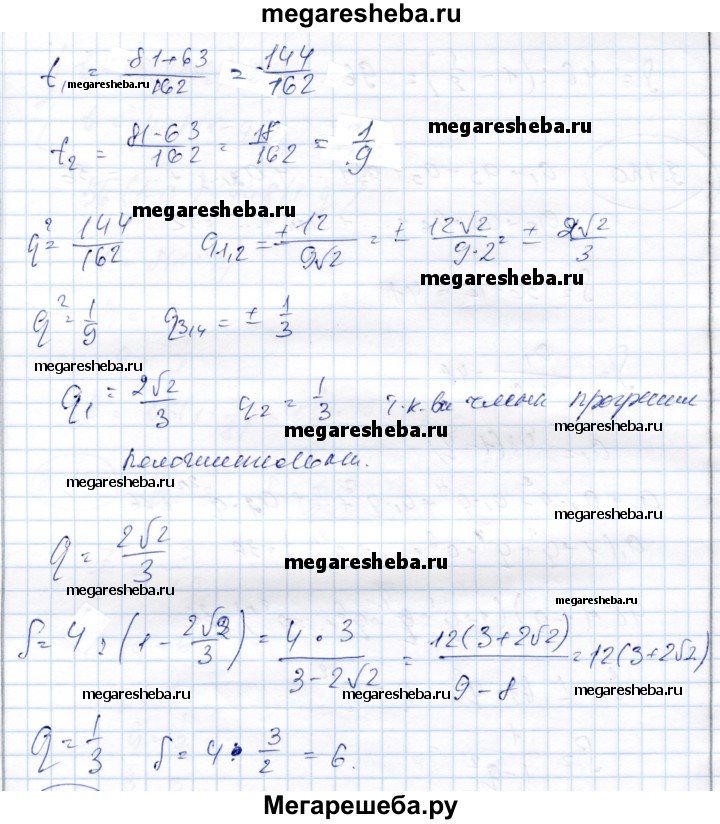 megaresheba.ru
t₁ = (81+63)/162 = 144/162
megaresheba.ru
t₂ = (81-63)/162 = 18/162 = 1/9
megaresheba.ru
megaresheba.ru
q² = 144/162 q₁,₂ = ±12/(9√2) = ± 12√2/(9·2) = ± 2√2/3
megaresheba.ru
q² = 1/9 q₃,₄ = ± 1/3
megaresheba.ru
q₁ = 2√2/3 q₂ = 1/3 т.к. все члены прогрессии
megaresheba.ru
megaresheba.ru
положительны.
megaresheba.ru
megaresheba.ru
q = 2√2/3
megaresheba.ru
megaresheba.ru
megaresheba.ru
S = 4 : (1 - 2√2/3) = 4·3/(3-2√2) = 12(3+2√2)/(9-8) = 12(3+2√2)
megaresheba.ru megaresheba.ru megaresheba.ru
q = 1/3 S = 4 · 3/2 = 6.
Мегарешеба.ру